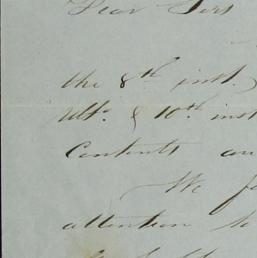 Dear Sirs
the 8th inst.
Ult. & 10th inst
Contents an
We
attention to